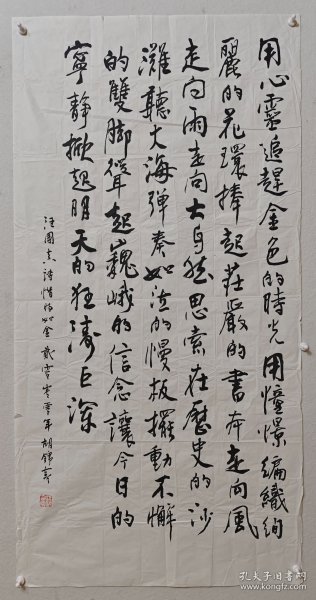 用心靈追趕金色的時光用憧憬編織絢
麗的花環捧起莊嚴的書本走向風
走向雨走向大自然思索在歷史的沙
灘聽大海彈奏如泣的慢板擺動不懈
的雙脚聳起巍峨的信念讓今日的
寧静掀起明天的狂濤巨瀾
汪國真詩惜時如金
孔夫子旧书网